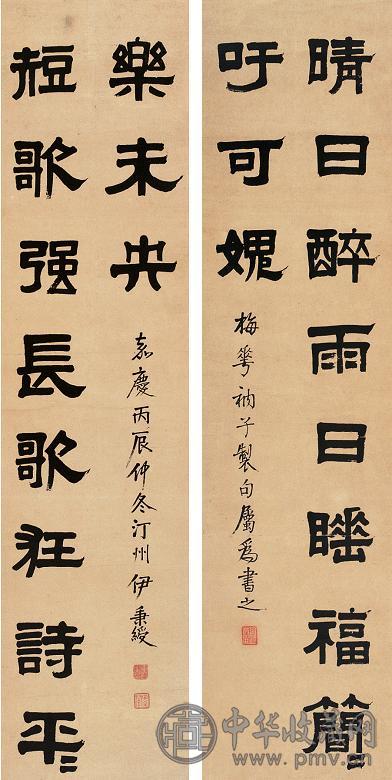 晴日醉雨日睡福簡〻
吁可媿
梅華衲子製句屬爲書之
短歌强長歌狂詩平〻
樂未央
嘉慶丙辰仲冬汀州伊秉綬
中华收藏网
pm.cang.com